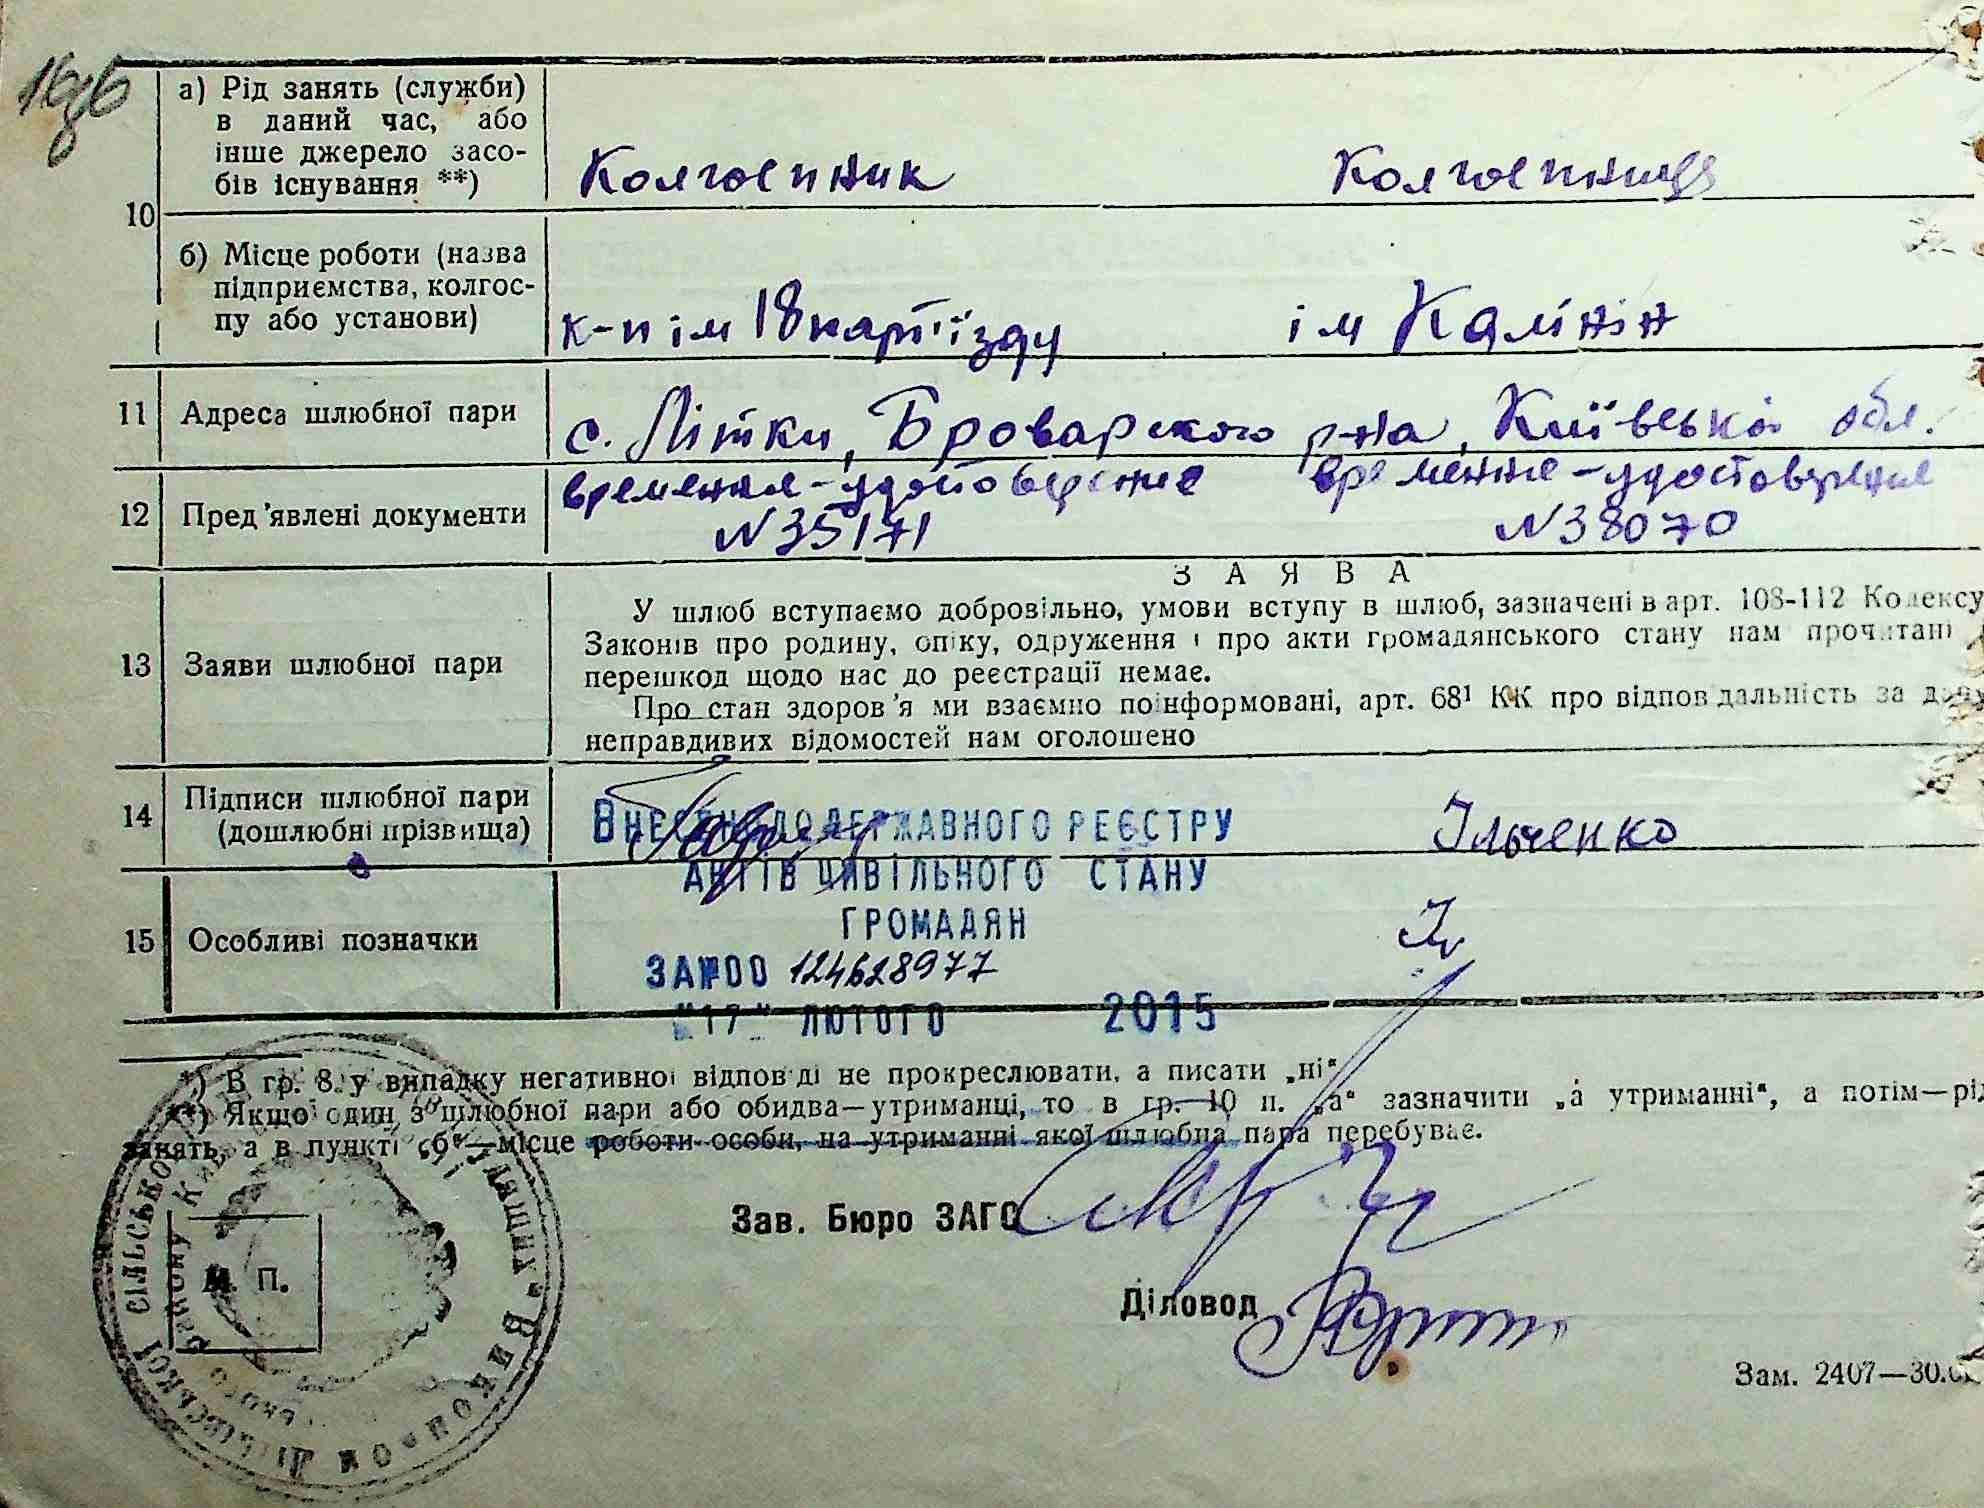 а) Рід занять (служби)
в даний час, або
інше джерело засо-
бів існування **)
Колгоспник Колгоспниця
10
б) Місце роботи (назва
підприємства, колгос-
пу або установи)
к-п ім 18 парт'їзду ім Калінін
11 Адреса шлюбної пари
с. Літки, Броварского р-на, Київська обл.
12 Пред'явлені документи
временна-удостоверение временне-удостоверение
N 35171 N 38070
ЗАЯВА
13 Заяви шлюбної пари
У шлюб вступаємо добровільно, умови вступу в шлюб, зазначені в арт. 108-112 Кодексу
Законів про родину, опіку, одруження і про акти громадянського стану нам прочитані
перешкод щодо нас до реєстрації немає.
Про стан здоров'я ми взаємно поінформовані, арт. 68¹ КК про відповідальність за
неправдивих відомостей нам оголошено
14 Підписи шлюбної пари
(дошлюбні прізвища)
Ільченко
Внесено до Державного реєстру
актів цивільного стану
громадян
15 Особливі позначки
ЗА №00 124628977
"17" лютого 2015
*) В гр. 8 у випадку негативної відповіді не прокреслювати, а писати „ні“
**) Якщо один з шлюбної пари або обидва—утриманці, то в гр. 10 п. „а“ зазначити „а утриманні“, а потім—рід
занять, а в пункті „б“—місце роботи особи, на утриманні якої шлюбна пара перебуває.
Зав. Бюро ЗАГС
М. П.
Діловод
Зам. 2407—30.